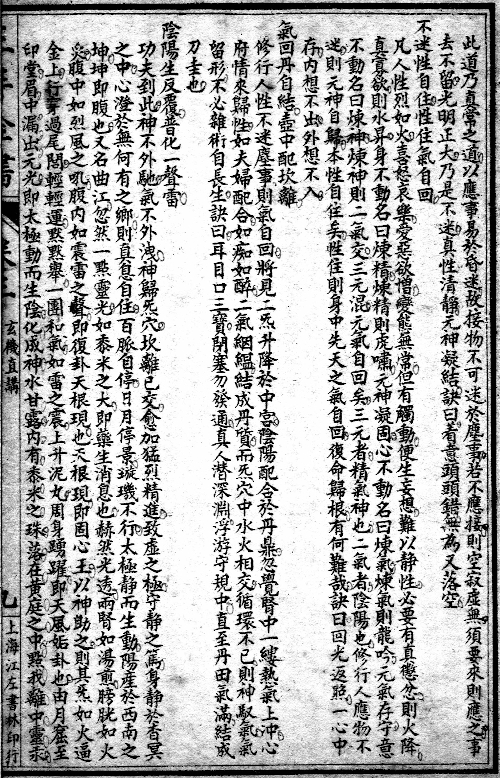 此道乃真常之道以應事易於昏迷故接物不可迷於塵事若不應接則空寂虛無須要來則應之事
去不留光明正大乃是不迷真性清靜元神凝結訣曰着意頭頭錯無為又落空
不迷性自住性住氣自回
凡人性烈如火喜怒哀樂愛惡欲憎變態無常但有觸動便生妄想難以靜性必要有真懲忿則火降
真窒欲則水升身不動名曰煉精煉精則虎嘯元神凝固心不動名曰煉氣煉氣則龍吟元氣存守意
不動名曰煉神煉神則二氣交三元混元氣自回矣三元者精氣神也二氣者陰陽也修行人應物不
迷則元神自歸本性自住矣性住則身中先天之氣自回復命歸根有何難哉訣曰回光返照一心中
存內想不出外想不入
氣回丹自結壺中配坎離
修行人性不迷塵事則氣自回將見二炁升降於中宮陰陽配合於丹鼎忽覺腎中一縷熱氣上冲心
府情來歸性如夫婦配合如痴如醉二氣絪縕結成丹質而炁穴中水火相交循環不已則神馭氣氣
留形不必雜術自長生訣曰耳目口三寶閉塞勿發通真人潛深淵浮游守規中直至丹田氣滿結成
刀圭也
陰陽生反覆普化一聲雷
功夫到此神不外馳氣不外洩神歸炁穴坎離已交愈加猛烈精進致虛之極守靜之篤身靜於杳冥
之中心澄於無何有之鄉則真息自住百脈自停日月停景璇璣不行太極靜而生動陽產於西南之
坤坤即腹也又名曲江忽然一點靈光如黍米之大即藥生消息也赫然光透兩腎如湯煎膀胱如火
炙腹中如烈風之吼腹內如震雷之聲即復卦天根現也天根現即固心王以神助之則其炁如火逼
金上行穿過尾閭輕輕運默默舉一團和氣如雷之震上升泥丸周身踴躍即天風姤卦也由月窟至
印堂眉中漏出元光即太極動而生陰化成神水甘露內有黍米之珠落在黃庭之中點我離中靈汞
玄機直講
九
上海江左書林印行